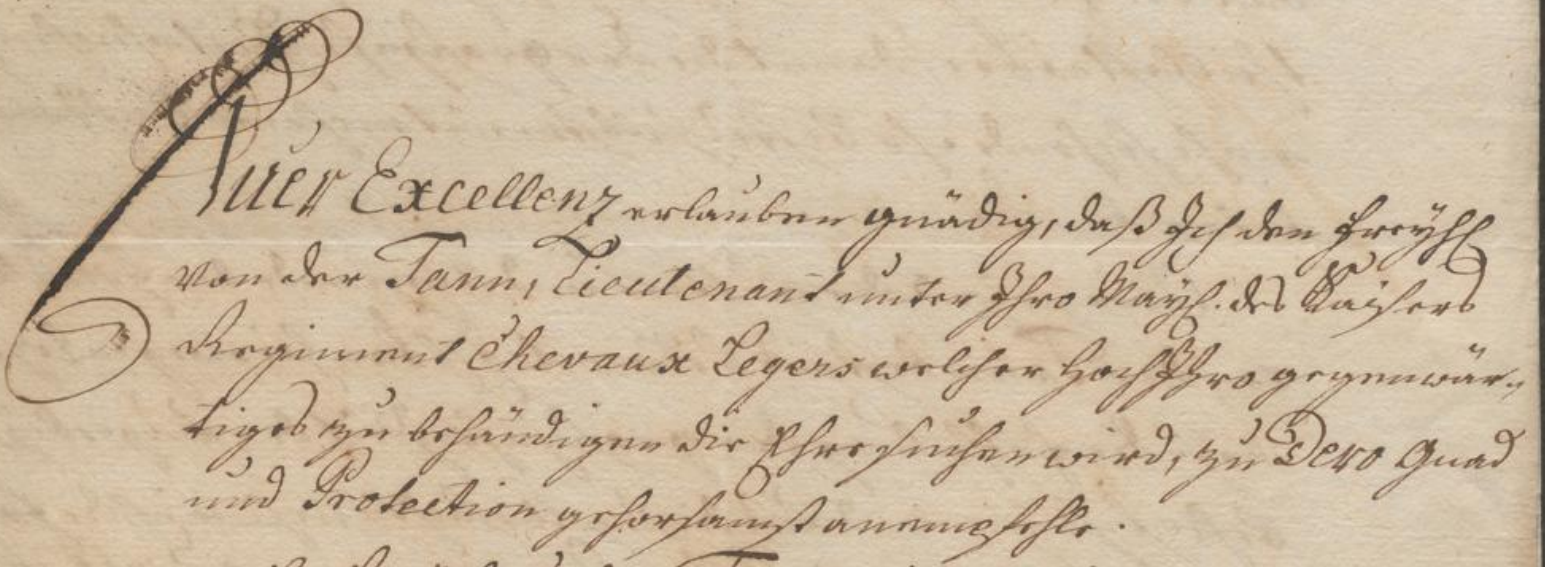 Euer Excellenz erlauben gnädig, daß Ich den Freyh.
von der Tann, Lieutenant unter Ihro May. des Kaisers
Regiment Chevaux Legers welcher HochIhro gegenwär-
tiges zu behändigen die Ehre suchen wird, zu Dero Gnad
und Protection gehorsamst anempfehle.